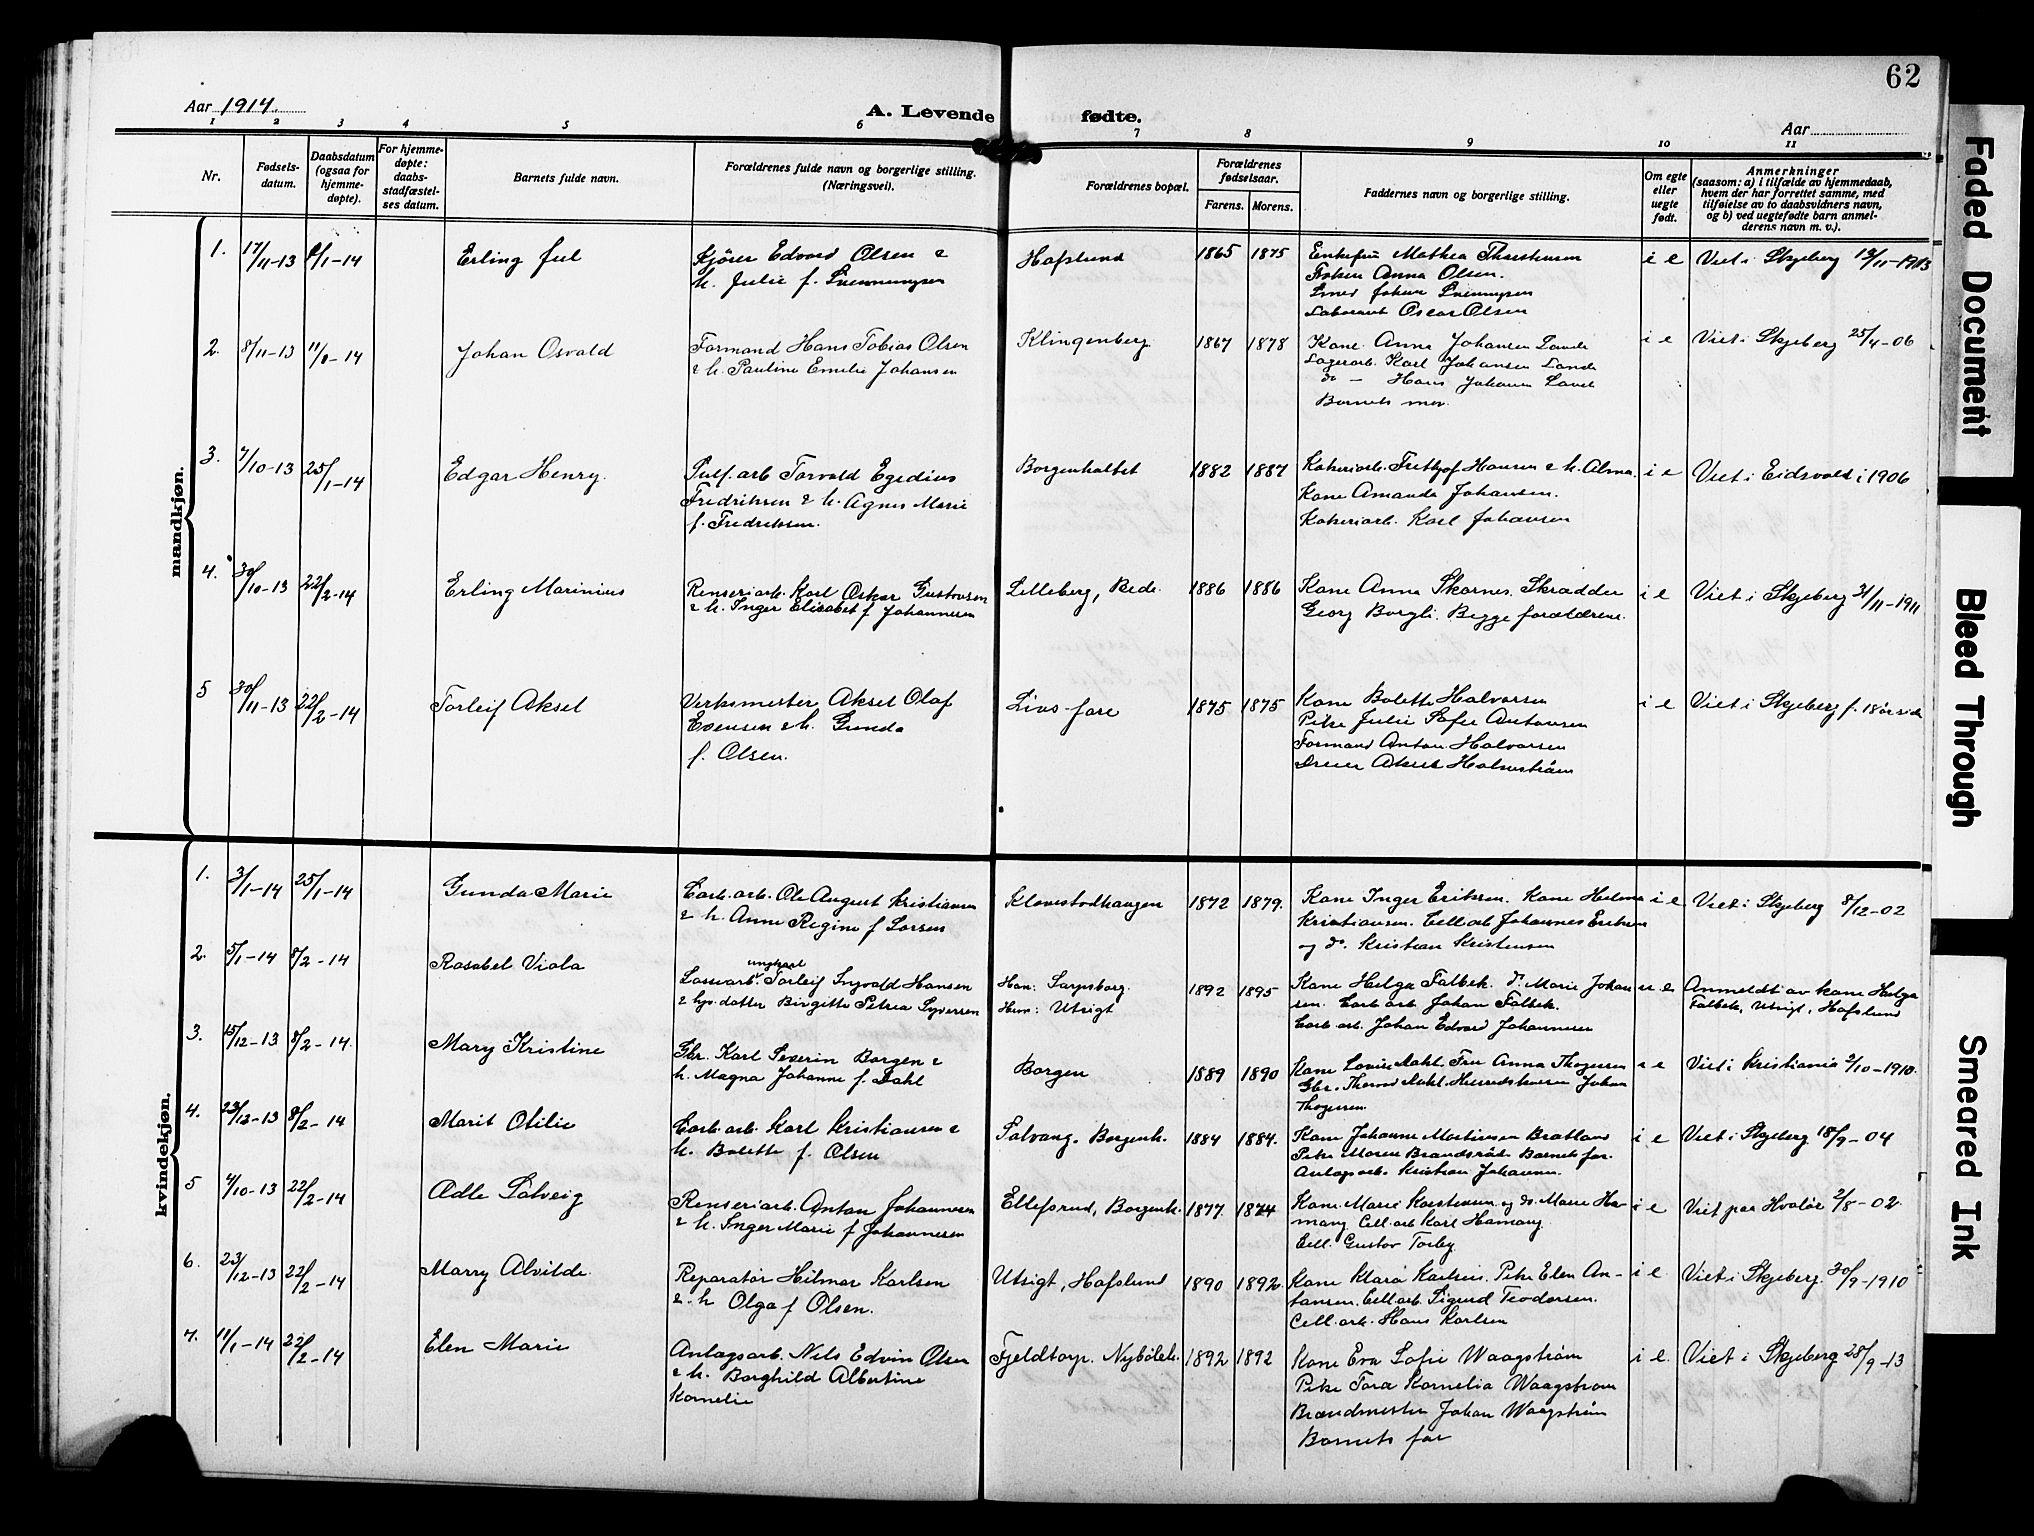 62
Aar 1914.
A. Levende fødte.
Aar
1 2 3 4 5 6 7 8 9 10 11
Nr.
Fødsels-
datum.
Daabsdatum
(ogsaa for
hjemme-
døpte).
For hjemme-
døpte:
daabs-
stadfæstel-
ses datum.
Barnets fulde navn.
Forældrenes fulde navn og borgerlige stilling.
(Næringsvei).
Forældrenes bopæl.
Forældrenes
fødselsaar.
Farens. Morens.
Faddernes navn og borgerlige stilling.
Om egte
eller
uegte
født.
Anmerkninger
(saasom: a) i tilfælde av hjemmedaab,
hvem der har forrettet samme, med
tilføielse av to daabsvidners navn,
og b) ved uegtefødte barn anmel-
derens navn m. v.).
mandkjøn.
1. 17/11-13 /1-14 Erling Juel
Kjører Edvard Olsen &
h. Julie f. Svenningsen
Hafslund 1865 1875
Enkefru Mathea Thrichsen
Frøken Anna Olsen.
Smed Johan Svenningsen
Laborant Oscar Olsen
i e Viet i Skjeberg 13/11-1913
2. 8/11-13 11/1-14 Johan Osvald
Formand Hans Tobias Olsen
& h. Pauline Emelie Johansen
Klingenberg 1867 1878
Kone Anna Johansen Lande
Lagerarb. Karl Johansen Lande
do — Hans Johansen Lande
Barnets mor.
i e Viet i Skjeberg 25/4-06
3. 7/10-13 25/1-14 Edgar Henry.
Sulf. arb Torvald Egedius
Fredriksen & h. Agnes Marie
f. Fredriksen.
Borgenholtet 1882 1887
Kokeriarb. Frithjof Hansen & h. Alma.
Kone Amanda Johansen.
Kokeriarb. Karl Johansen
i e Viet i Eidsvold i 1906
4. 30/10-13 22/2-14 Erling Marinius
Renseriarb. Karl Oskar Gustavsen
& h. Inger Elisabet f Johannesen
Lilleberg, Rede. 1886 1886
Kone Anna Skarnes. Skrædder
Georg Borgli. Begge forældrene.
i e Viet i Skjeberg 31/11-1911
5 30/11-13 22/2-14 Torleif Aksel
Verksmester Aksel Olaf
Evensen & h. Gunda
f. Olsen.
Livs-fare 1875 1875
Kone Bolette Halvorsen
Pike Julie Sofie Antonsen
Formand Anton Halvorsen
Dreier Aksel Holmstrøm
i e Viet i Skjeberg f. 18 år side
kvindekjøn.
1. 3/1-14 25/1-14 Gunda Marie
Carb. arb. Ole August Kristiansen
& h. Anne Regine f Larsen
Kløvestadhaugen 1872 1879.
Kone Inger Eriksen. Kone Helma
Kristiansen. Cell arb Johannes Eriksen
og do. Kristian Kristensen
i e Viet i Skjeberg 8/12-02
2. 5/1-14 8/2-14 Rosabel Viola
ungkarl
Lossearb. Torleif Ingvald Hansen
& hjv. datter Birgitte Petrea Syversen
Han: Sarpsborg.
Hun: Utsigt
1892 1895
Kone Helga Falbek. do Marie Johan
sen. Carb arb Johan Falbek.
Carb. arb. Johan Edvard Johannesen
u e Anmeldt av kone Helga
Falbek, Utsigt, Hafslund
3. 15/12-13 8/2-14. Mary Kristine
Gbr. Karl Severin Borgen &
h. Magna Johanne f. Dahl
Borgen 1889 1890
Kone Lovise Dahl. Fru Anna Thogersen
Gbr. Thorvald Dahl. Herredskasserer Johan
Thogersen.
i e Viet i Kristiania 2/10-1910.
4. 23/12-13 8/2-14 Marit Otilie
Carb. arb. Karl Kristiansen &
h. Bolette f. Olsen
Solvang. Borgenh. 1884 1884.
Kone Johanne Martinsen Bratland
Pike Maren Brandsrød. Barnets far.
Anlagsarb. Kristian Johansen.
i e Viet i Skjeberg 18/9-04
5 4/10-13 22/2-14 Ædle Sølveig
Renseriarb. Anton Johannesen
& h. Inger Marie f Johannesen
Ellefsrud, Borgenh. 1877. 1874
Kone. Marie Karstensen og do. Marie Ha-
mang Cell. arb Karl Hamang.
Cell. Gustav Torby.
i e Viet paa Hvaler 2/8-02.
6. 23/12-13 22/2-14 Marry Alvilde.
Reparatør Hilmar Karlsen
& h Olga f Olsen.
Utsigt, Hafslund 1890 1892
Kone Klara Karlsen. Pike Elen An-
tonsen. Cell arb. Sigurd Teodorsen.
Cell. arb. Hans Karlsen
i e Viet i Skjeberg. 30/9-1910
7. 11/1-14 22/2-14 Elen Marie
Anlagsarb. Nils Edvin Olsen
& h. Borghild Albertine
Kornelie
Fjeldtorp. Nybølet. 1892 1892
Kone Eva Sofie Waagstrøm
Pike Tora Kornelia Waagstrøm
Brandmester Johan Waagstrøm
Barnets far
i e. Viet i Skjeberg 28/9-13
Faded Document
Bleed Through
Smeared Ink